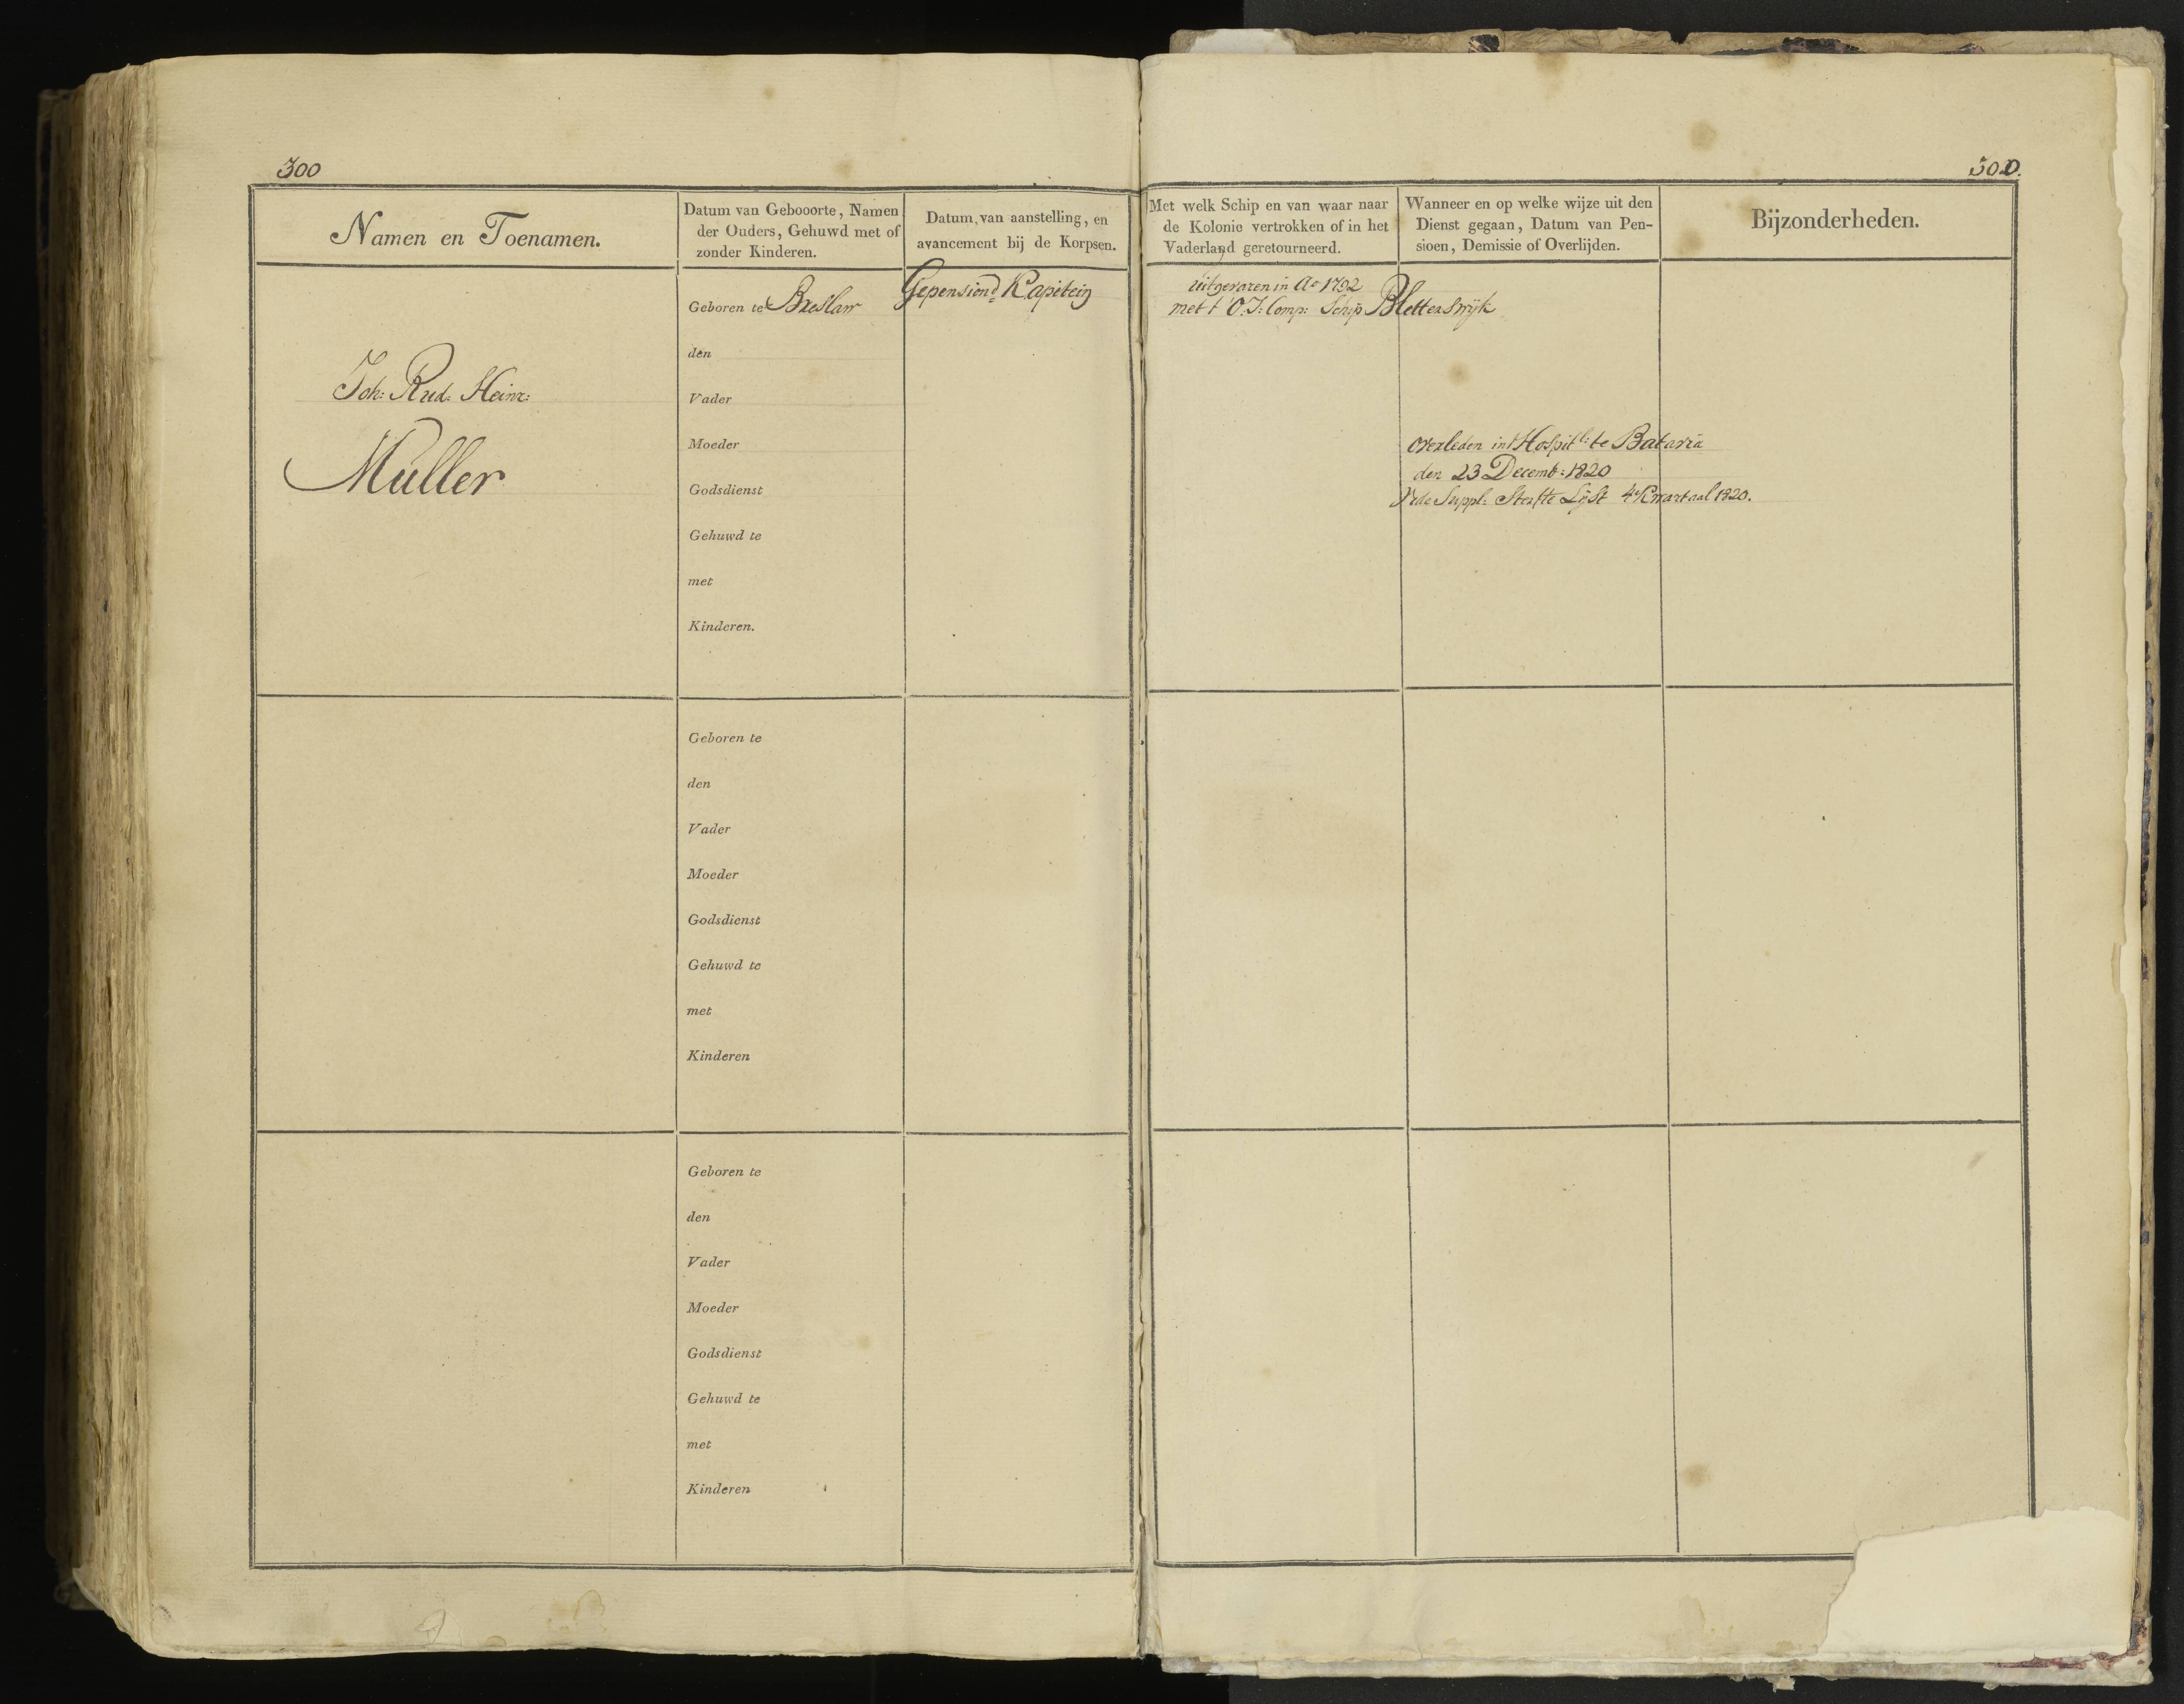 300
300.
Namen en Toenamen.
Datum van Gebooorte, Namen
der Ouders, Gehuwd met of
zonder Kinderen.
Datum van aanstelling, en
avancement bij de Korpsen.
Met welk Schip en van waar naar
de Kolonie vertrokken of in het
Vaderland geretourneerd.
Wanneer en op welke wijze uit den
Dienst gegaan, Datum van Pen-
sioen, Demissie of Overlijden.
Bijzonderheden.
Joh: Rud: Heinr:
Muller
Geboren te Breslaw
den
Vader
Moeder
Godsdienst
Gehuwd te
met
Kinderen.
Gepensiond Kapitein
Uitgevaren in Ao 1792
met t O:I: Comp: Schip Bletterswijk
overleden int Hospitl: te Batavia
den 23 Decemb: 1820
Vide Suppl: Sterfte Lijst 4e Kwartaal 1820.
Geboren te
den
Vader
Moeder
Godsdienst
Gehuwd te
met
Kinderen
Geboren te
den
Vader
Moeder
Godsdienst
Gehuwd te
met
Kinderen